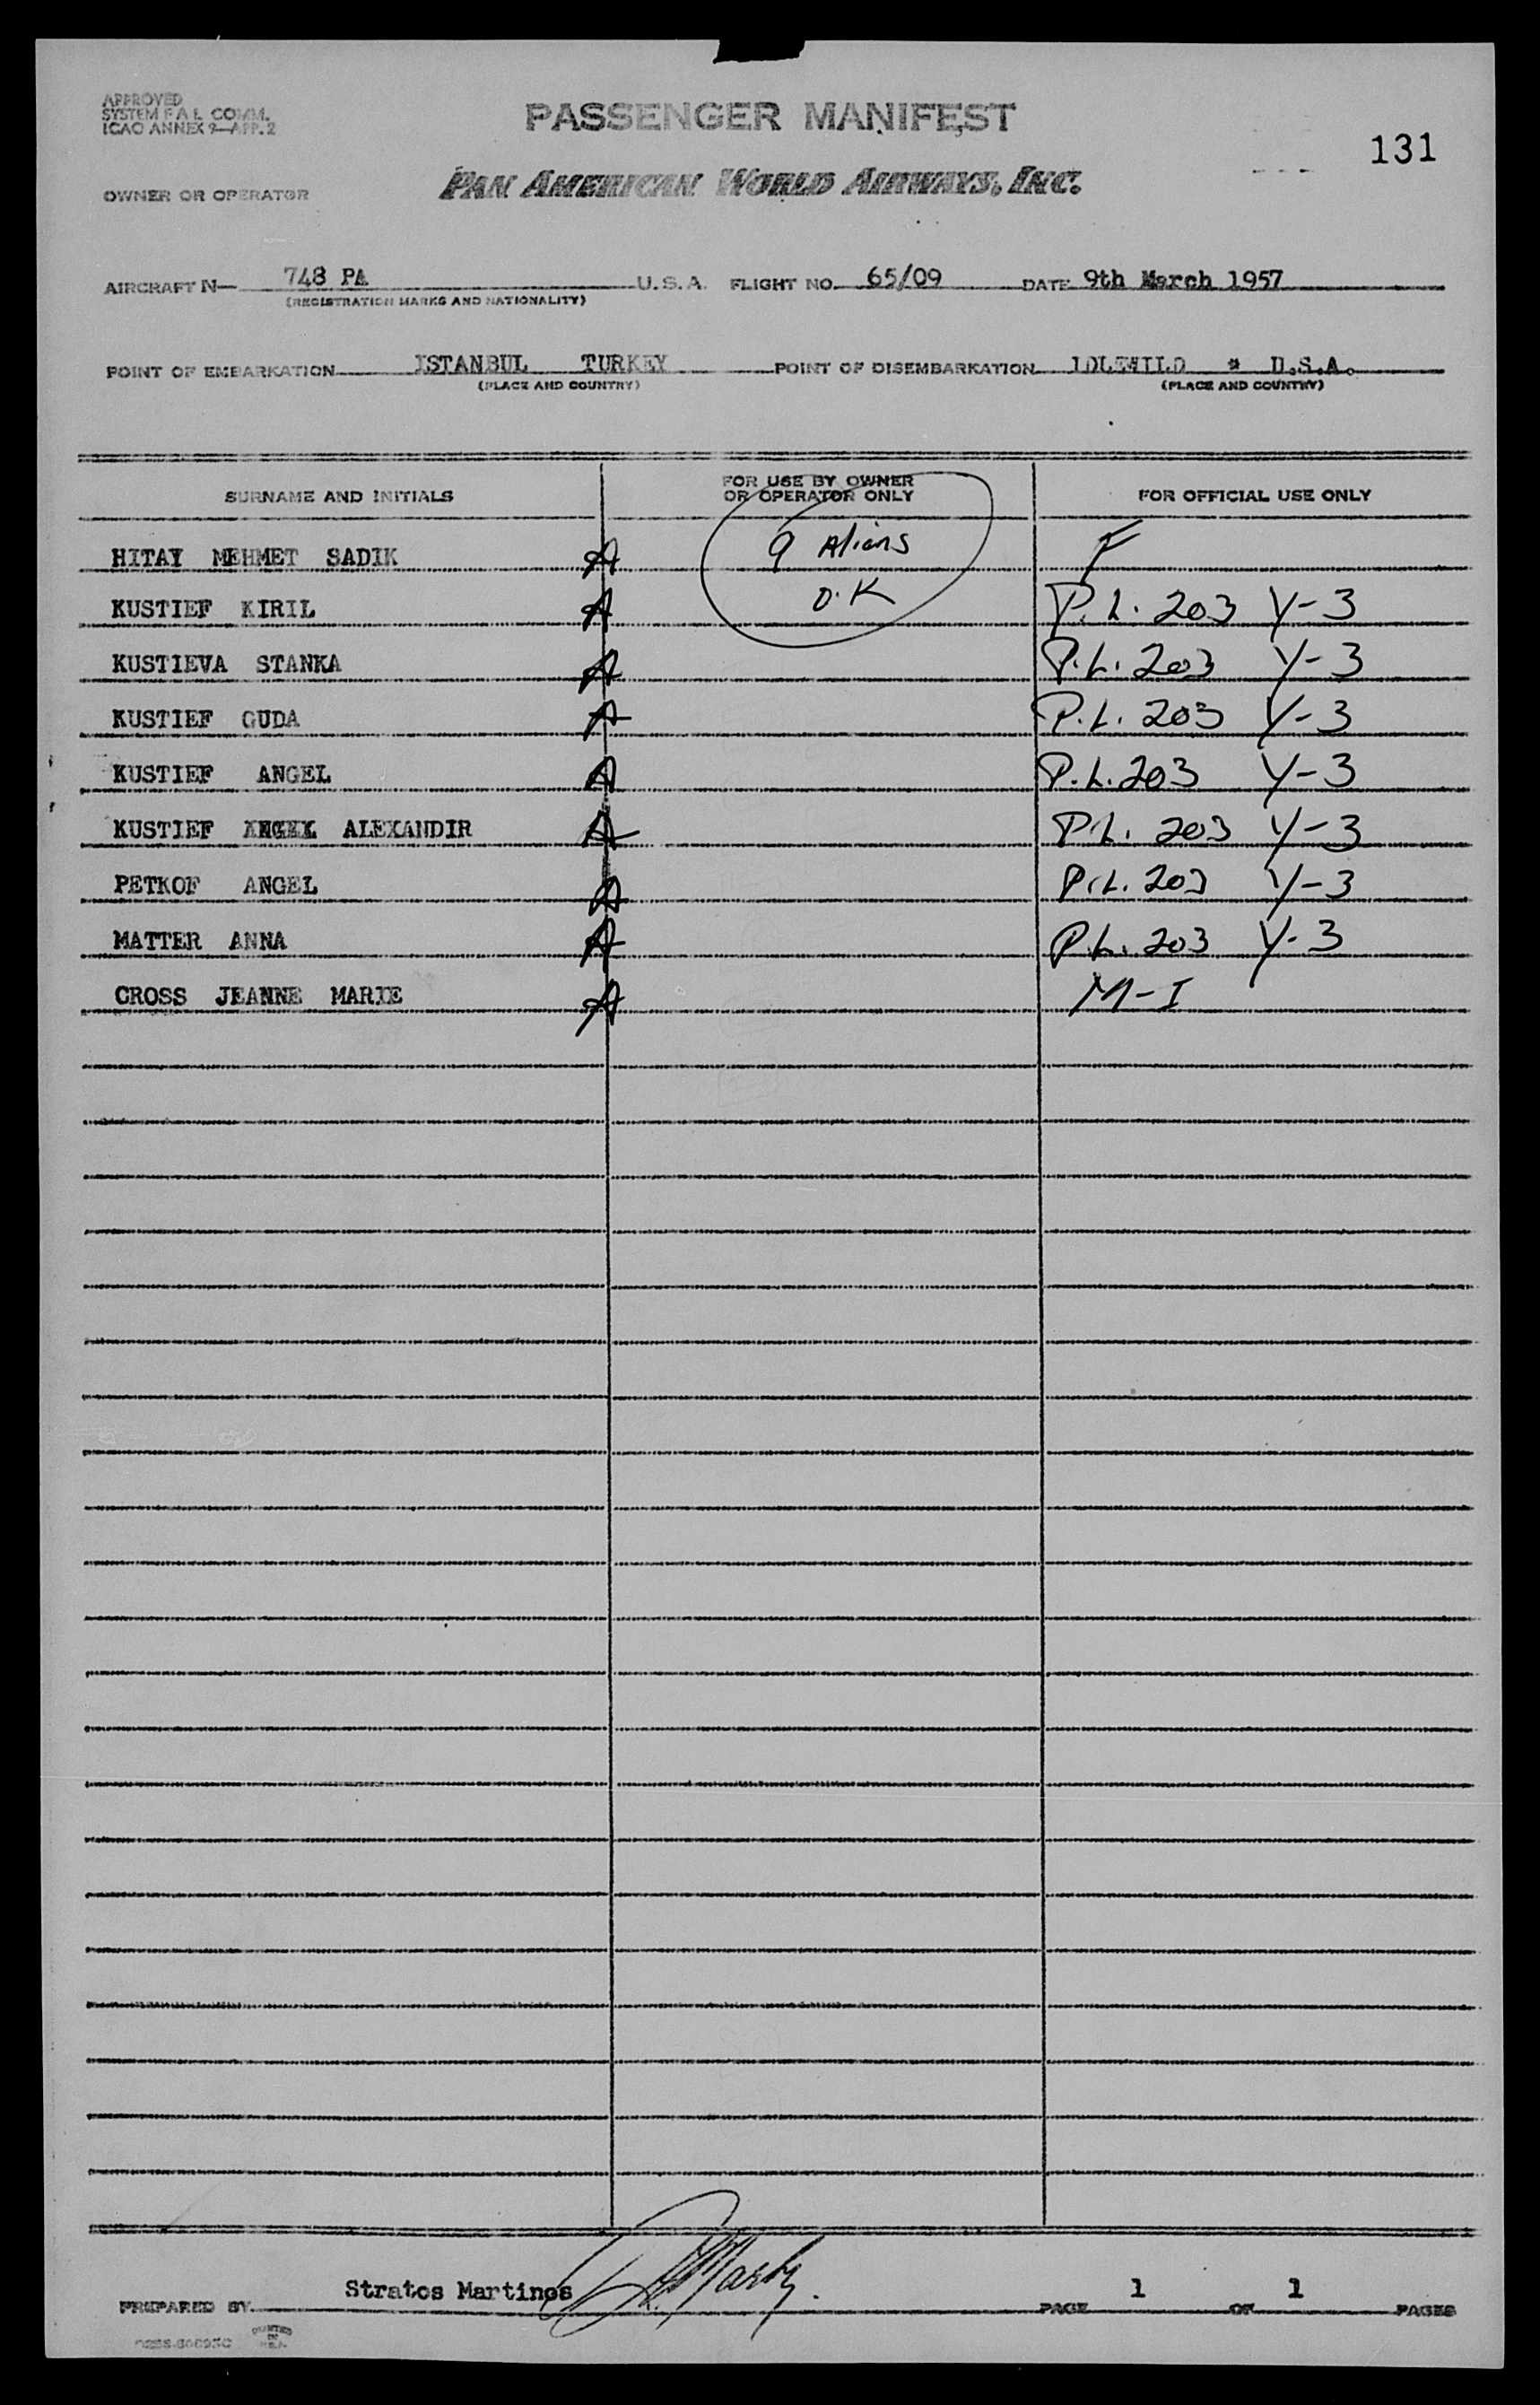 APPROVED
SYSTEM F A L COMM.
ICAO ANNEX 9—APP. 2
PASSENGER MANIFEST
131
OWNER OR OPERATOR
PAN AMERICAN WORLD AIRWAYS, INC.
AIRCRAFT N— 748 PA U.S.A. FLIGHT NO. 65/09 DATE 9th March 1957
(REGISTRATION MARKS AND NATIONALITY)
POINT OF EMBARKATION ISTANBUL TURKEY POINT OF DISEMBARKATION IDLEWILD * U.S.A.
(PLACE AND COUNTRY) (PLACE AND COUNTRY)
SURNAME AND INITIALS FOR USE BY OWNER OR OPERATOR ONLY FOR OFFICIAL USE ONLY
HITAY MEHMET SADIK A 9 Aliens F
KUSTIEF KIRIL A O.K P.L. 203 Y-3
KUSTIEVA STANKA A P.L. 203 Y-3
KUSTIEF GUDA A P.L. 203 Y-3
KUSTIEF ANGEL A P.L. 203 Y-3
KUSTIEF ALEXANDIR A P.L. 203 Y-3
PETKOF ANGEL A P.L. 203 Y-3
MATTER ANNA A P.L. 203 Y-3
CROSS JEANNE MARIE A M-I
PREPARED BY Stratos Martinos PAGE 1 OF 1 PAGES
PRINTED
IN
U.S.A.